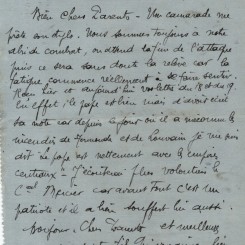 Bien Chers Parents - Un camarade me
prête son stylo. Nous sommes toujours à notre
abri de combat, on attend la fin de l'attaque
puis ce sera sans doute la relève car la
fatigue commence réellement à se faire sentir.
Reçu hier et aujourd'hui vos lettres du 18 et du 19.
En effet, le pape est bien mais d'avoir
sa note car depuis le jour où il a
incendies de et de Louvain je me suis
dit le pape est nettement avec les empires
centraux - J'écrirai plus volontiers le
Cal Mercier car avant tout c'est un
patriote et il a bien souffert lui aussi.
Bonjour, Chers Parents et meilleurs